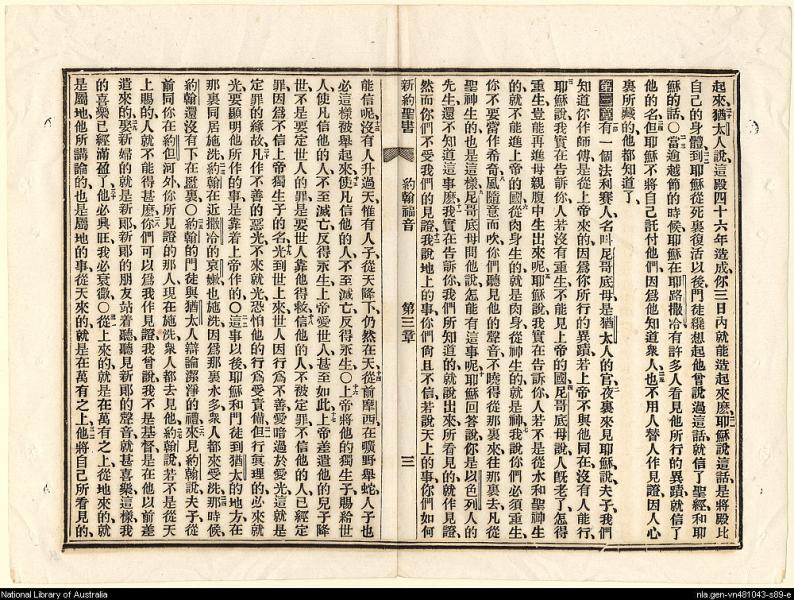 起來、猶太人說、這殿四十六年造成、你三日內就能造起來麼、耶穌說這話、是將殿比
自己的身體、到耶穌從死裏復活以後、門徒纔想起他曾說過這話、就信了聖經和耶
穌的話○當逾越節的時候、耶穌在耶路撒冷、有許多人看見他所行的異蹟、就信了
他的名、但耶穌不將自己託付他們、因爲他知道衆人、也不用人替人作見證、因人心
裏所藏的他都知道了、
第三章有一個法利賽人、名叫尼哥底母、是猶太人的官、夜裏來見耶穌說、夫子、我們
知道你作師傅、是從上帝來的、因你所行的異蹟、若上帝不與他同在、沒有人能行、
耶穌說、我實在告訴你、人若沒有重生、不能見上帝的國、尼哥底母說、人旣老了、怎得
重生、豈能再進母親腹中生出來呢、耶穌說、我實在告訴你、人若不是從水和聖神生
的、就不能進上帝的國、從肉身生的、就是肉身、從神生的、就是神、我說你們必須重生、
你不要當作希奇、風隨意而吹、你們聽見他的聲音、不曉得從那裏來、往那裏去、凡從
聖神生的、也是這樣、尼哥底母問他說、怎能有這事呢、耶穌回答說、你是以色列人的
先生、還不知道這事麼、我實在告訴你、我們所知道的、就說出來、所看見的、就作見證、
然而你們不受我們的見證、我說地上的事、你們尙且不信、若說天上的事、你們如何
新約聖書 約翰福音 第三章 三
能信呢、沒有人升過天、惟有人子從天降下、仍然在天、從前摩西在曠野舉蛇、人子也
必這樣被舉起來、使凡信他的人、不至滅亡、反得永生○上帝將他的獨生子賜給世
人、使凡信他的人、不至滅亡、反得永生、上帝愛世人、甚至如此、上帝差遣他的兒子降
世、不是要定世人的罪、是要世人靠他得救、信他的人、不被定罪、不信他的人、已經定
罪、因爲不信上帝獨生子的名、光到世上來、世人因行爲不善、愛暗過於愛光、這就是
定罪的緣故、凡作不善的、惡光、不來就光、恐怕他的行爲受責備、但行眞理的、必來就
光、要顯明他所作的事、是靠着上帝作的○這事以後、耶穌和門徒到猶太的地方、在
那裏同居施洗、約翰在近撒冷的哀嫩也施洗、因爲那裏水多、衆人都來受洗、那時候
約翰還沒有下在監裏○約翰的門徒與猶太人辯論潔淨的禮、來見約翰說、夫子、從
前同你在約但河外、你所見證的那人、現在施洗、衆人都去見他、約翰說、若不是從天
上賜的、人就不能得甚麼、你們可以爲我作見證、我曾說、我不是基督、是在他以前差
遣來的、娶新婦的、就是新郞、新郞的朋友站着聽、聽見新郞的聲音、就甚喜樂、這樣我
的喜樂已經滿盈了、他必興旺、我必衰微○從上來的、就是在萬有之上、從地來的、就
是屬地、他所講論的、也是屬地的事、從天來的、就是在萬有之上、他將自己所看見的、
National Library of Australia
nla.gen-vn481043-s89-e